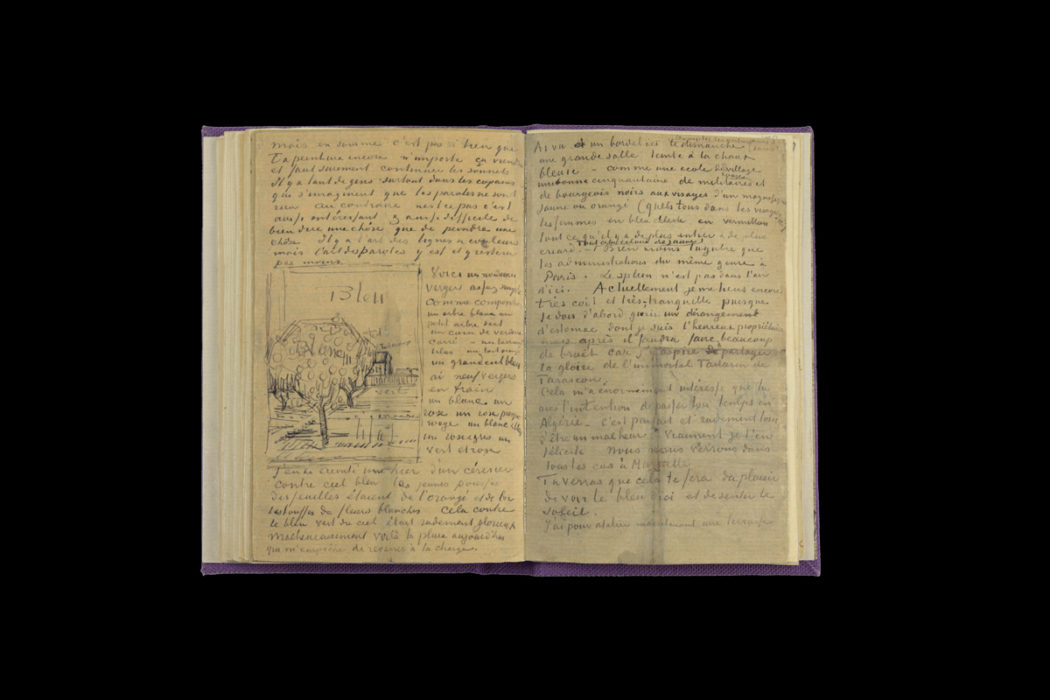 mais en somme c'est pas si bien que
ta peinture encore n'importe ça viendra
et faut surement continuer les sonnets
Il y a tant de gens surtout dans les copains
qui s'imaginent que les paroles ne sont
rien au contraire n'est ce pas c'est
aussi intéressant & aussi difficile de
bien dire une chose que de peindre une
chose. Il y a l'art des lignes & couleurs
mais l'art des paroles y est et y restera
pas moins
Voici un nouveau
verger assez simple
comme composition
un arbre blanc un
petit arbre vert
un coin de verdure
carré – un terrain
lilas un toit orangé
un grand ciel bleu
ai neuf vergers
en train
un blanc un
rose un rose presque
rouge un blanc &
un rose gris un
vert et rose
Bleu
blanc
vert
J'en ai éreinté un hier d'un cerisier
contre ciel bleu les jeunes pousses
des feuilles étaient de l'orangé et de l'or
les touffes de fleurs blanches cela contre
le bleu vert du ciel était rudement glorieux
Malheureusement voilà la pluie aujourdhui
qui m'empêche de revenir à la charge.
Ai vu un bordel ici le dimanche
une grande salle teinte à la chaux
bleuie – comme une école de village
une bonne cinquantaine de militaires et
de bourgeois noirs aux visages d'un magnifique
jaune ou orangé (quels tons dans les visages
les femmes en bleu céleste en vermillon
tout ce qu'il y a de plus entier & de plus
criard. Bien moins lugubre que
les administrations du même genre à
Paris. Le spleen n'est pas dans l'air
d'ici. Actuellement je me tiens encore
très coit et très tranquille puisque
je dois d'abord guérir un dérangement
d'estomac dont je suis l'heureux propriétaire
mais après il faudra faire beaucoup
de bruit car j'aspire de partager
la gloire de l'immortel Tartarin de
Tarascon.
Cela m'a énormément intéressé que tu
aies l'intention de passer ton temps en
Algérie. C'est parfait et rudement loin
d'être un malheur. Vraiment je t'en
félicite nous nous verrons dans
tous les cas à Marseille
Tu verras que cela te fera du plaisir
de voir le bleu d'ici et de sentir le
soleil.
J'ai pour atelier maintenant une terrasse